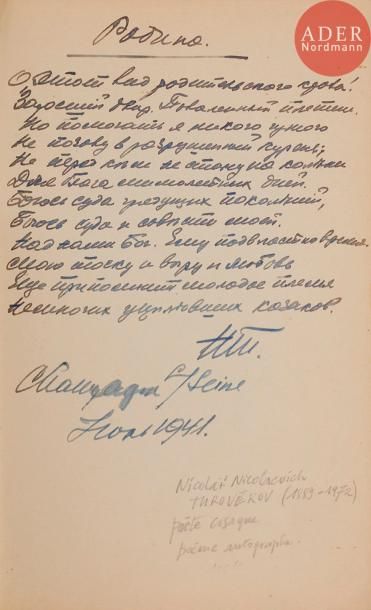 ADER
Nordmann
Родина.
О этот вид родительского крова!
Заросший двор. Поваленный плетень.
Но помогать я никого чужого
Не позову в разрушенный курень;
Ни перед кем не стану на колени
Для блага мимолетных дней.
Боюсь суда грядущих поколений,
Боюсь суда и совести моей.
Над нами Бог. Ему подвластно время.
Мою тоску и веру и любовь
Еще припомнит молодое племя
Немногих уцелевших казаков.
НТ.
Champagne s/Seine
1941.
Nicolaï Nicolaevich
TUROVEROV (1899-1972)
poète cosaque
poème autographe.